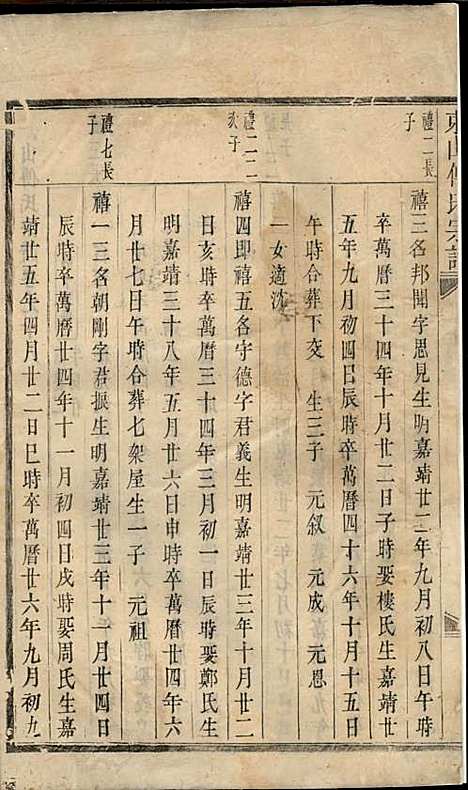 東山傅氏宗譜
禮二長子
禧三名邦聞字思見生明嘉靖廿二年九月初八日午時
卒萬曆三十四年十月廿二日子時娶樓氏生嘉靖廿
五年九月初四巳辰時卒萬曆四十六年十月十五日
午時合葬下交 生三子 元叙 元成 元恩
一女適沈
禮二二次子
禧四即禧五名守德字君義生明嘉靖廿三年十月廿二
日亥時卒萬曆三十四年三月初一日辰時娶鄭氏生
明嘉靖三十八年五月廿六日申時卒萬曆廿四年六
月廿七日午時合葬七架屋生一子 元祖
禮七長子
禧一三名朝剛字君振生明嘉靖廿三年十一月廿四日
辰時卒萬曆廿四年十一月初四日戌時娶周氏生嘉
靖廿五年四月廿二日巳時卒萬曆廿六年九月初九